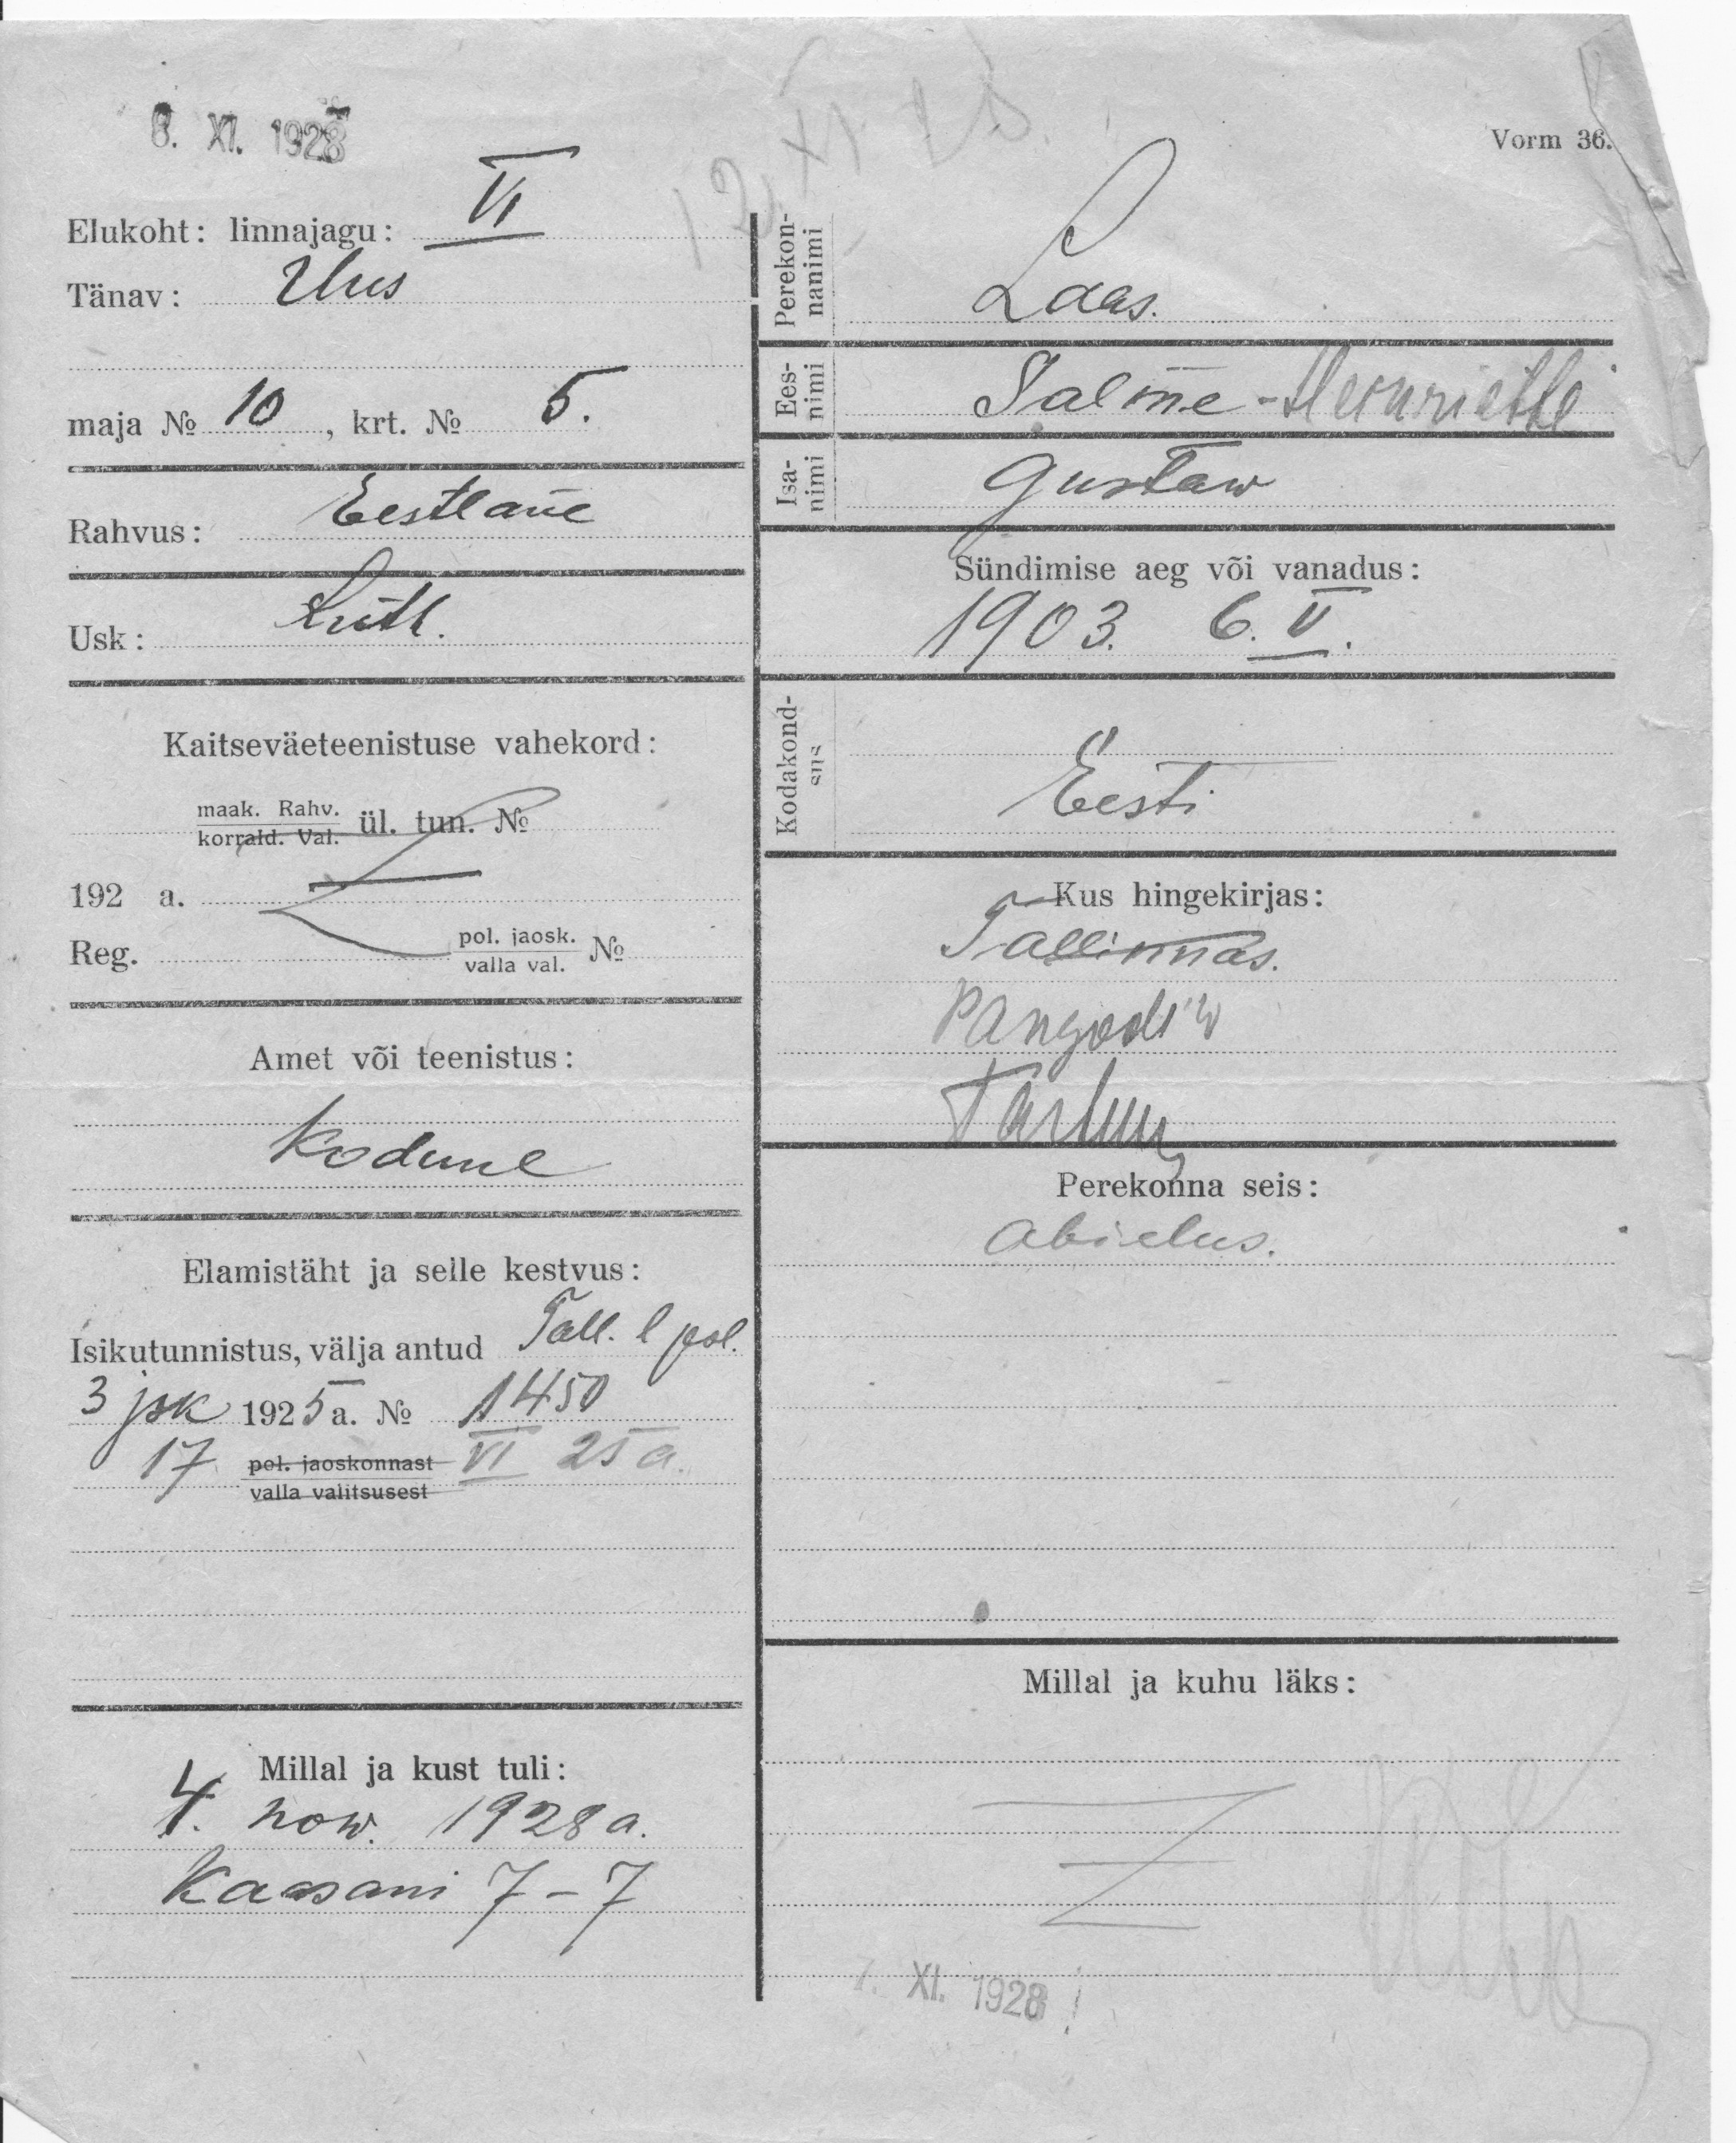 8. XI. 1928
12. XI 28.
Vorm 36.
Elukoht: linnajagu: VI
Tänav: Uus
maja № 10, krt. № 5.
Rahvus: Eestlane
Usk: Luth.
Kaitseväeteenistuse vahekord:
maak. Rahv.
korrald. Val. ül. tun. №
192 a.
Reg. pol. jaosk.
valla val. №
Amet või teenistus:
Kodune
Elamistäht ja selle kestvus:
Isikutunnistus, välja antud Tall. l pol.
3 jsk 1925 a. № 1450
17 pol. jaoskonnast VI 25 a.
valla valitsusest
Millal ja kust tuli:
4. now. 1928 a.
Kaasani 7-7
Perekon-
nanimi
Laas.
Ees-
nimi
Salme-Henriette
Isa-
nimi
Gustaw
Sündimise aeg või vanadus:
1903. 6. V.
Kodakond-
sus
Eesti
Kus hingekirjas:
Tallinnas.
Pangodi w
Tartum
Perekonna seis:
abielus.
Millal ja kuhu läks:
7. XI. 1928